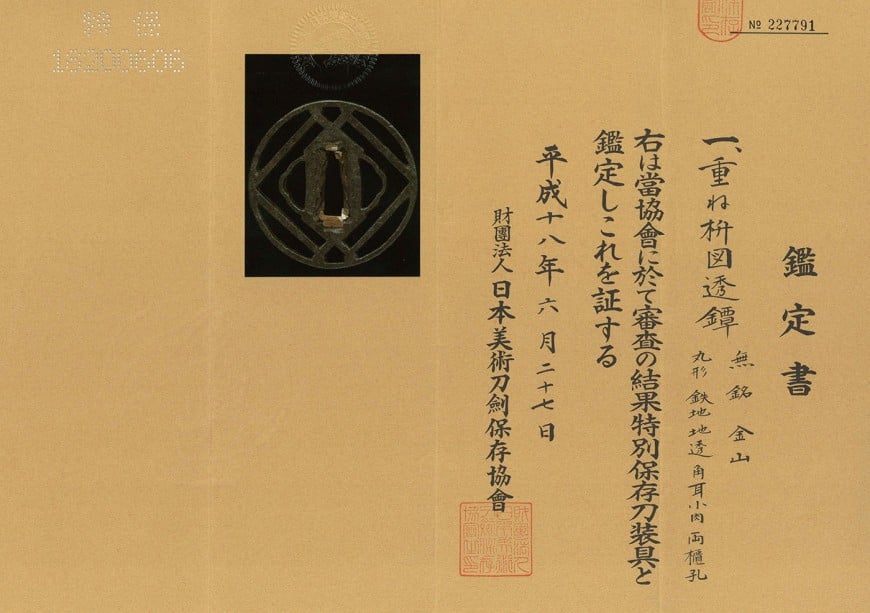 № 227791
鑑定書
一、重ね枡図透鐔
無銘 金山
丸形 鉄地 地透 角耳小肉 両櫃孔
右は當協會に於て審査の結果特別保存刀装具と
鑑定しこれを証する
平成十八年六月二十七日
財團法人日本美術刀劍保存協會
特保
18200606